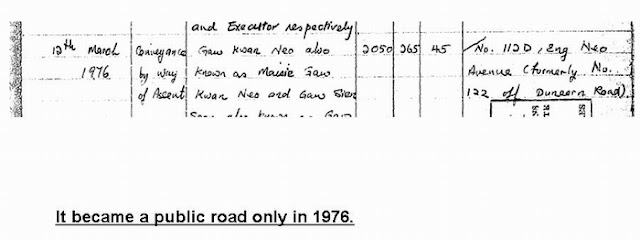 and Executor respectively
12th March Conveyance Gaw Kwan Neo also 2050 265 45 No. 112D, Eng Neo
1976 by way known as Maisie Gaw Avenue (formerly No.
of Assent Kwan Neo and Gaw Sien 122 off Dunearn Road).
also known as Gaw
It became a public road only in 1976.